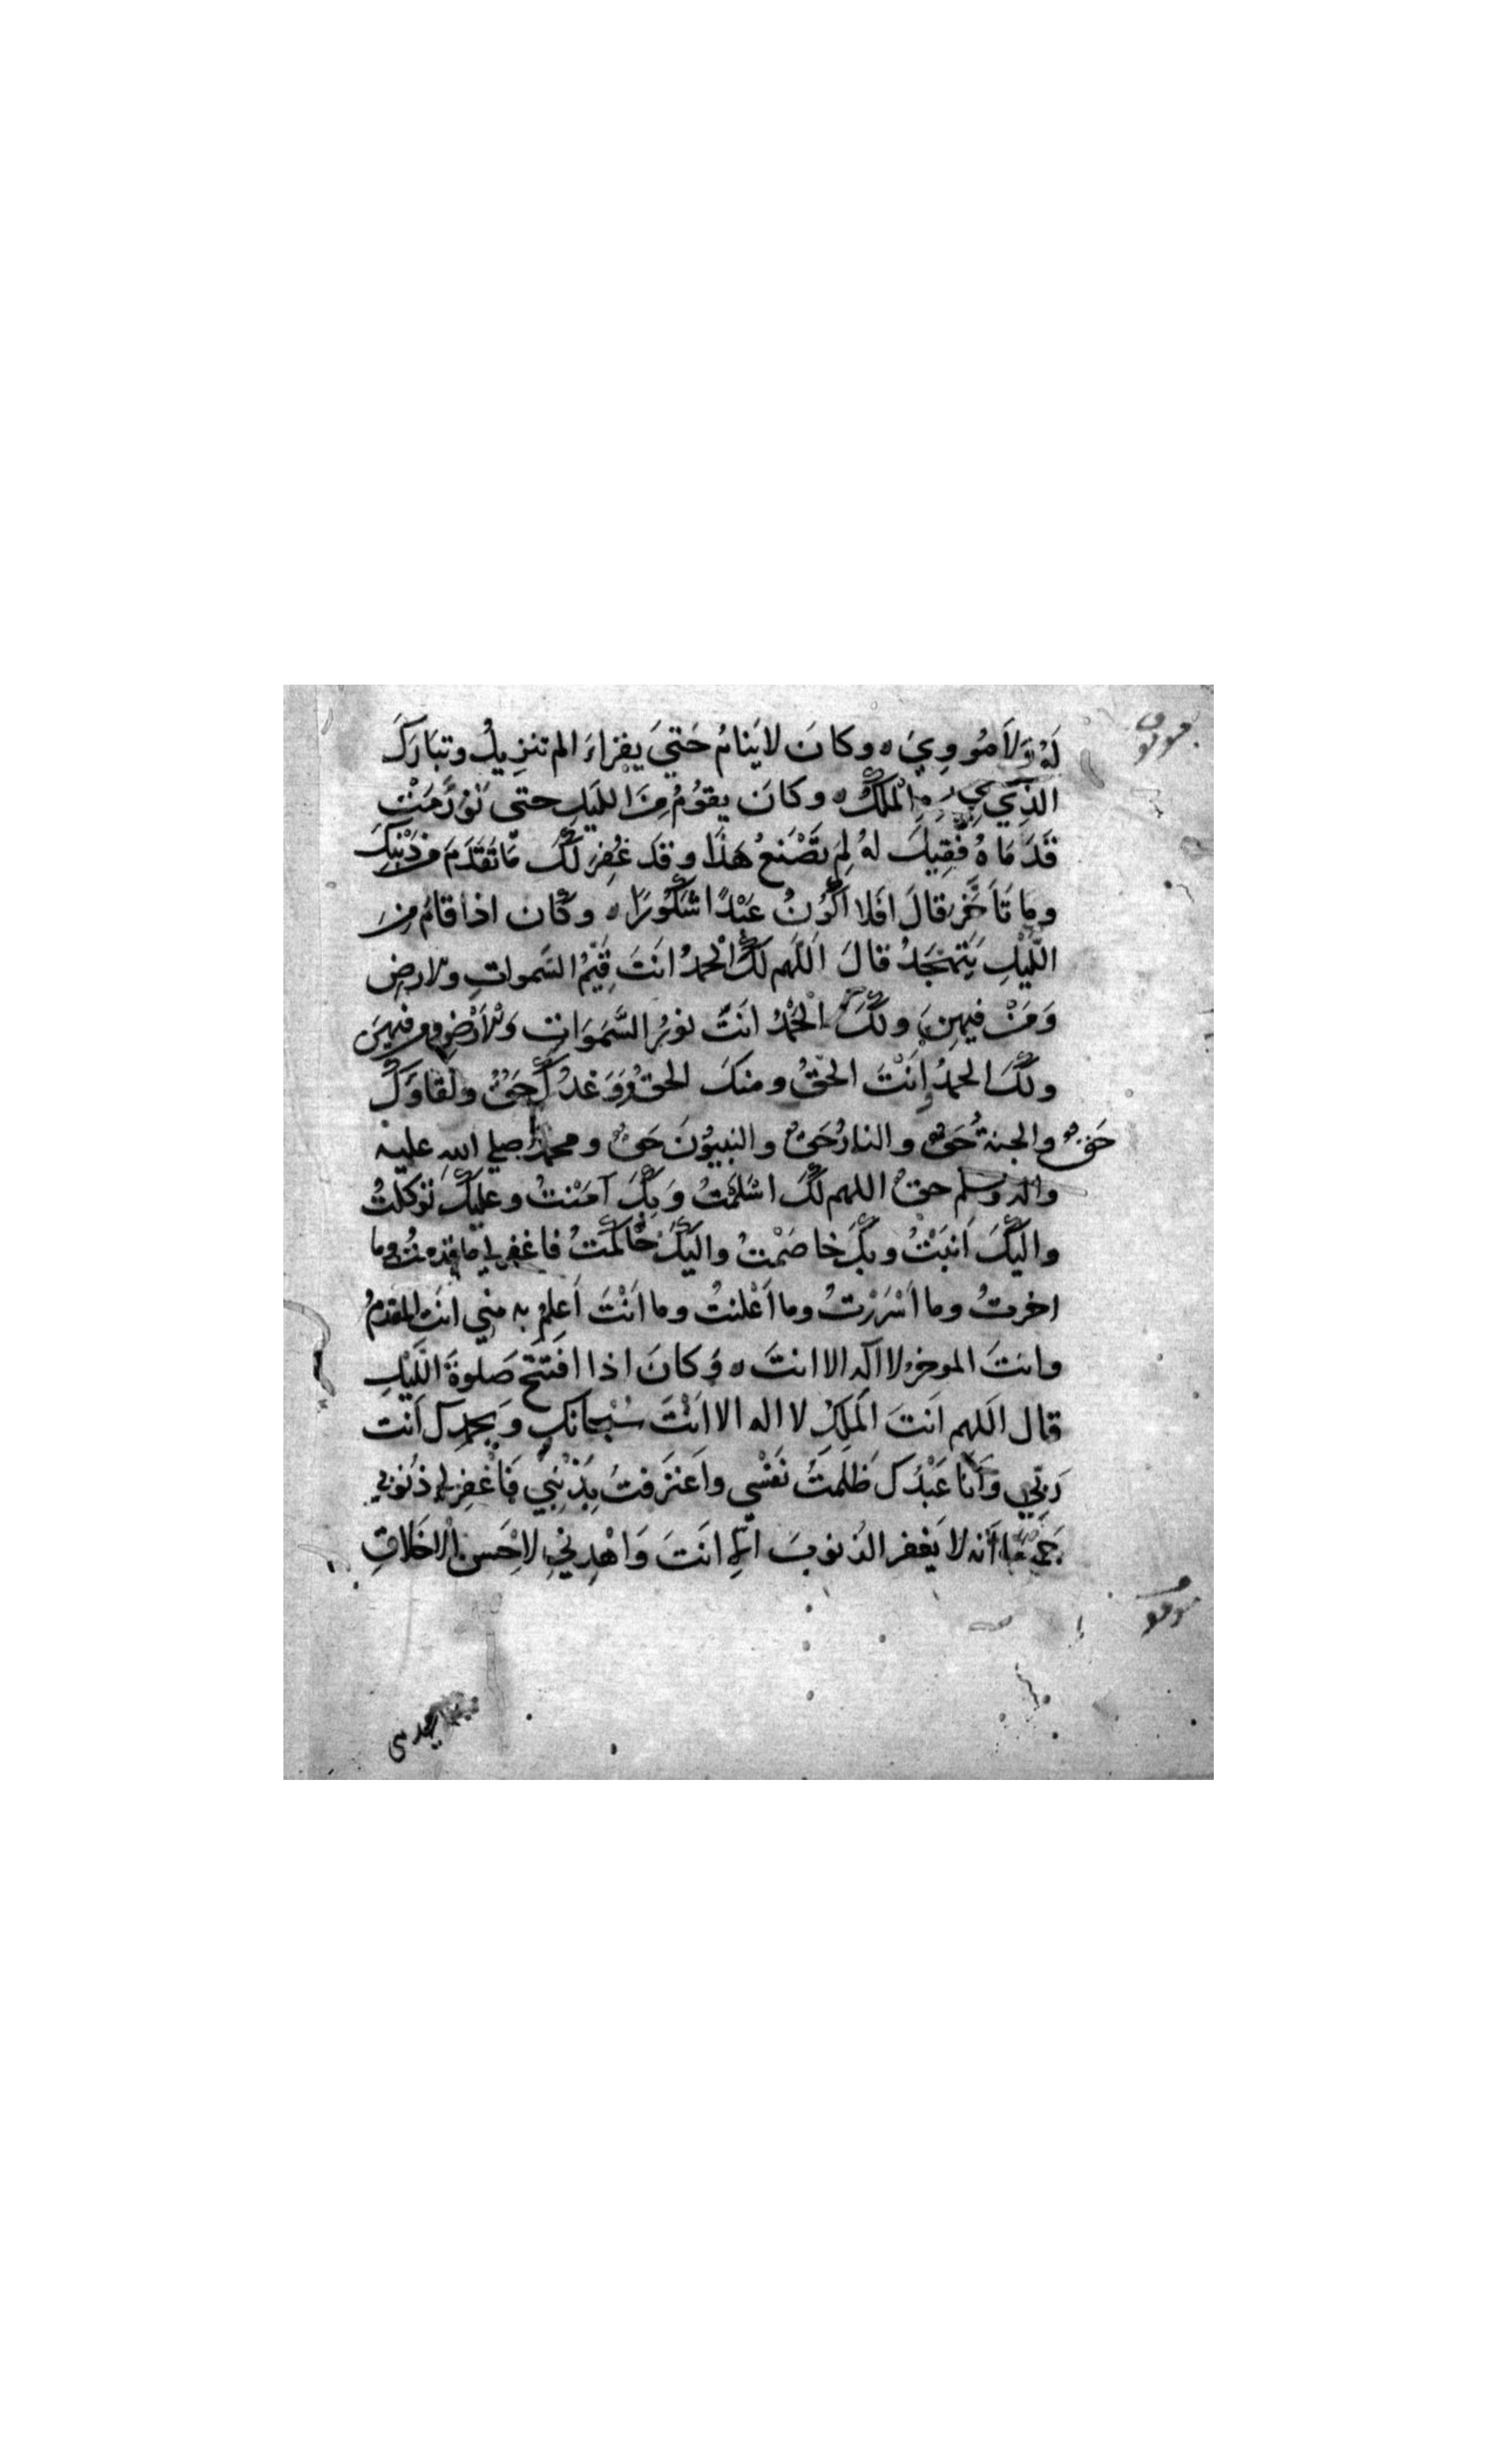 لَهُ وَلَا مُووِيَ ه وكانَ لا يَنامُ حَتيَ يقراءَ الم تنزيلُ وتبارَكَ
الذِي بيده الملكُ ه وكانَ يقوُمُ مِنَ الليَلِ حتى تَوَرَّمَتْ
قَدَمَاهُ فَقِيلَ لهُ لِمَ تَصْنَعُ هَذَا وقد غُفِرَ لكَ مَا تَقَدَمَ من ذَنْبِكَ
وما تَأخَّر قالَ افَلا اكُونُ عَبْدًا شَكُورًا ه وكان اذا قامَ مِنَ
اللَّيْلِ يَتَهجَدُ قالَ اَللّهم لكَ الْحمدُ انَتَ قَيّمُ السَّمواتِ ولارضِ
وَمَنْ فيهِنَ ولكَ الْحَمْدُ انَتَ نورُ السَّمَوَاتِ وَلْاَرْضِ ومن فيهِنَ
ولكَ الحمدُ اَنْتَ الحَقُ ومنكَ الحقُ وَوَعْدُكَ حَقٌ ولقاؤكَ
حَقٌ والجنةُ حَقٌ والنارُ حَقٌ والنبيوُنَ حَقٌ ومحمدٌ صلي الله عليه
واله وسلم حقٌ اللهم لكَ اسْلَمَتُ وَبِكَ آمَنْتُ وعليكَ توكلتُ
واليكَ اَنَبْتُ وبكَ خاصَمْتُ واليكَ حَاكَمَتُ فاغفر لي ما قدمتُ وما
اخرتُ وما اَسْرَرْتُ وما اَعْلنتُ وما اَنْتَ اَعلمُ به مني انَتَ المقدمُ
وانتَ الموخرُ لا اله الا انتَ ه وَكانَ اذا افتَتَحَ صَلوةَ اللَّيْلِ
قال اَللهم اَنتَ اَلملِكُ لا اله الا اَنْتَ سُبْحانكَ وَبحمدِكَ اَنت
رَبّي وَاَنا عَبْدُكَ ظَلَمَتُ نَفْسي واَعتَرَفتُ بِذَنْبِيَ فَاَغْفِرْ لي ذنُوبي
جَميْعًا اَنه لا يَغفر الذنوبَ الا انَتَ وَاهْدِنِي لاِحْسن الْاخَلاقِ